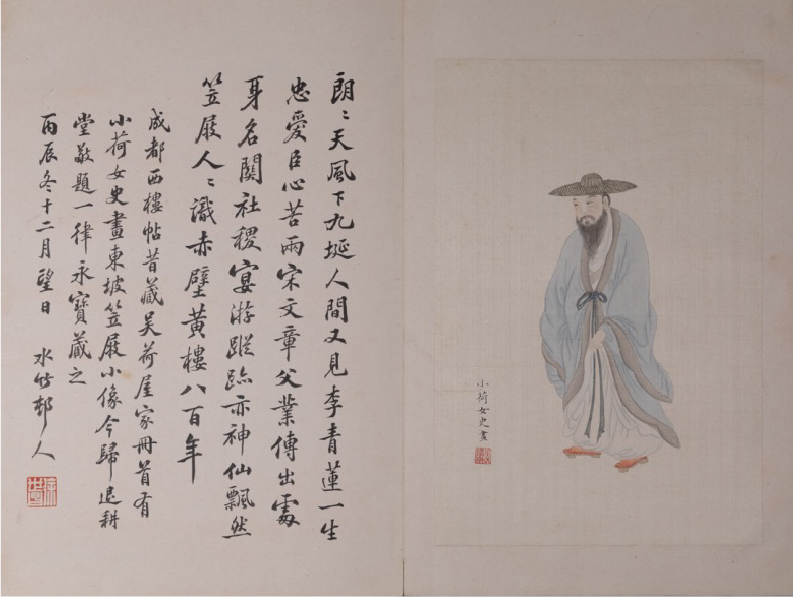 小荷女史畫
朗〻天風下九埏人間又見李青蓮一生
忠愛臣心苦兩宋文章父業傳出處
身名關社稷宴游蹤跡亦神仙飄然
笠屐人〻識赤壁黃樓八百年
成都西樓帖昔藏吳荷屋家冊首有
小荷女史畫東坡笠屐小像今歸退耕
堂敬題一律永寶藏之
丙辰冬十二月望日 水竹邨人